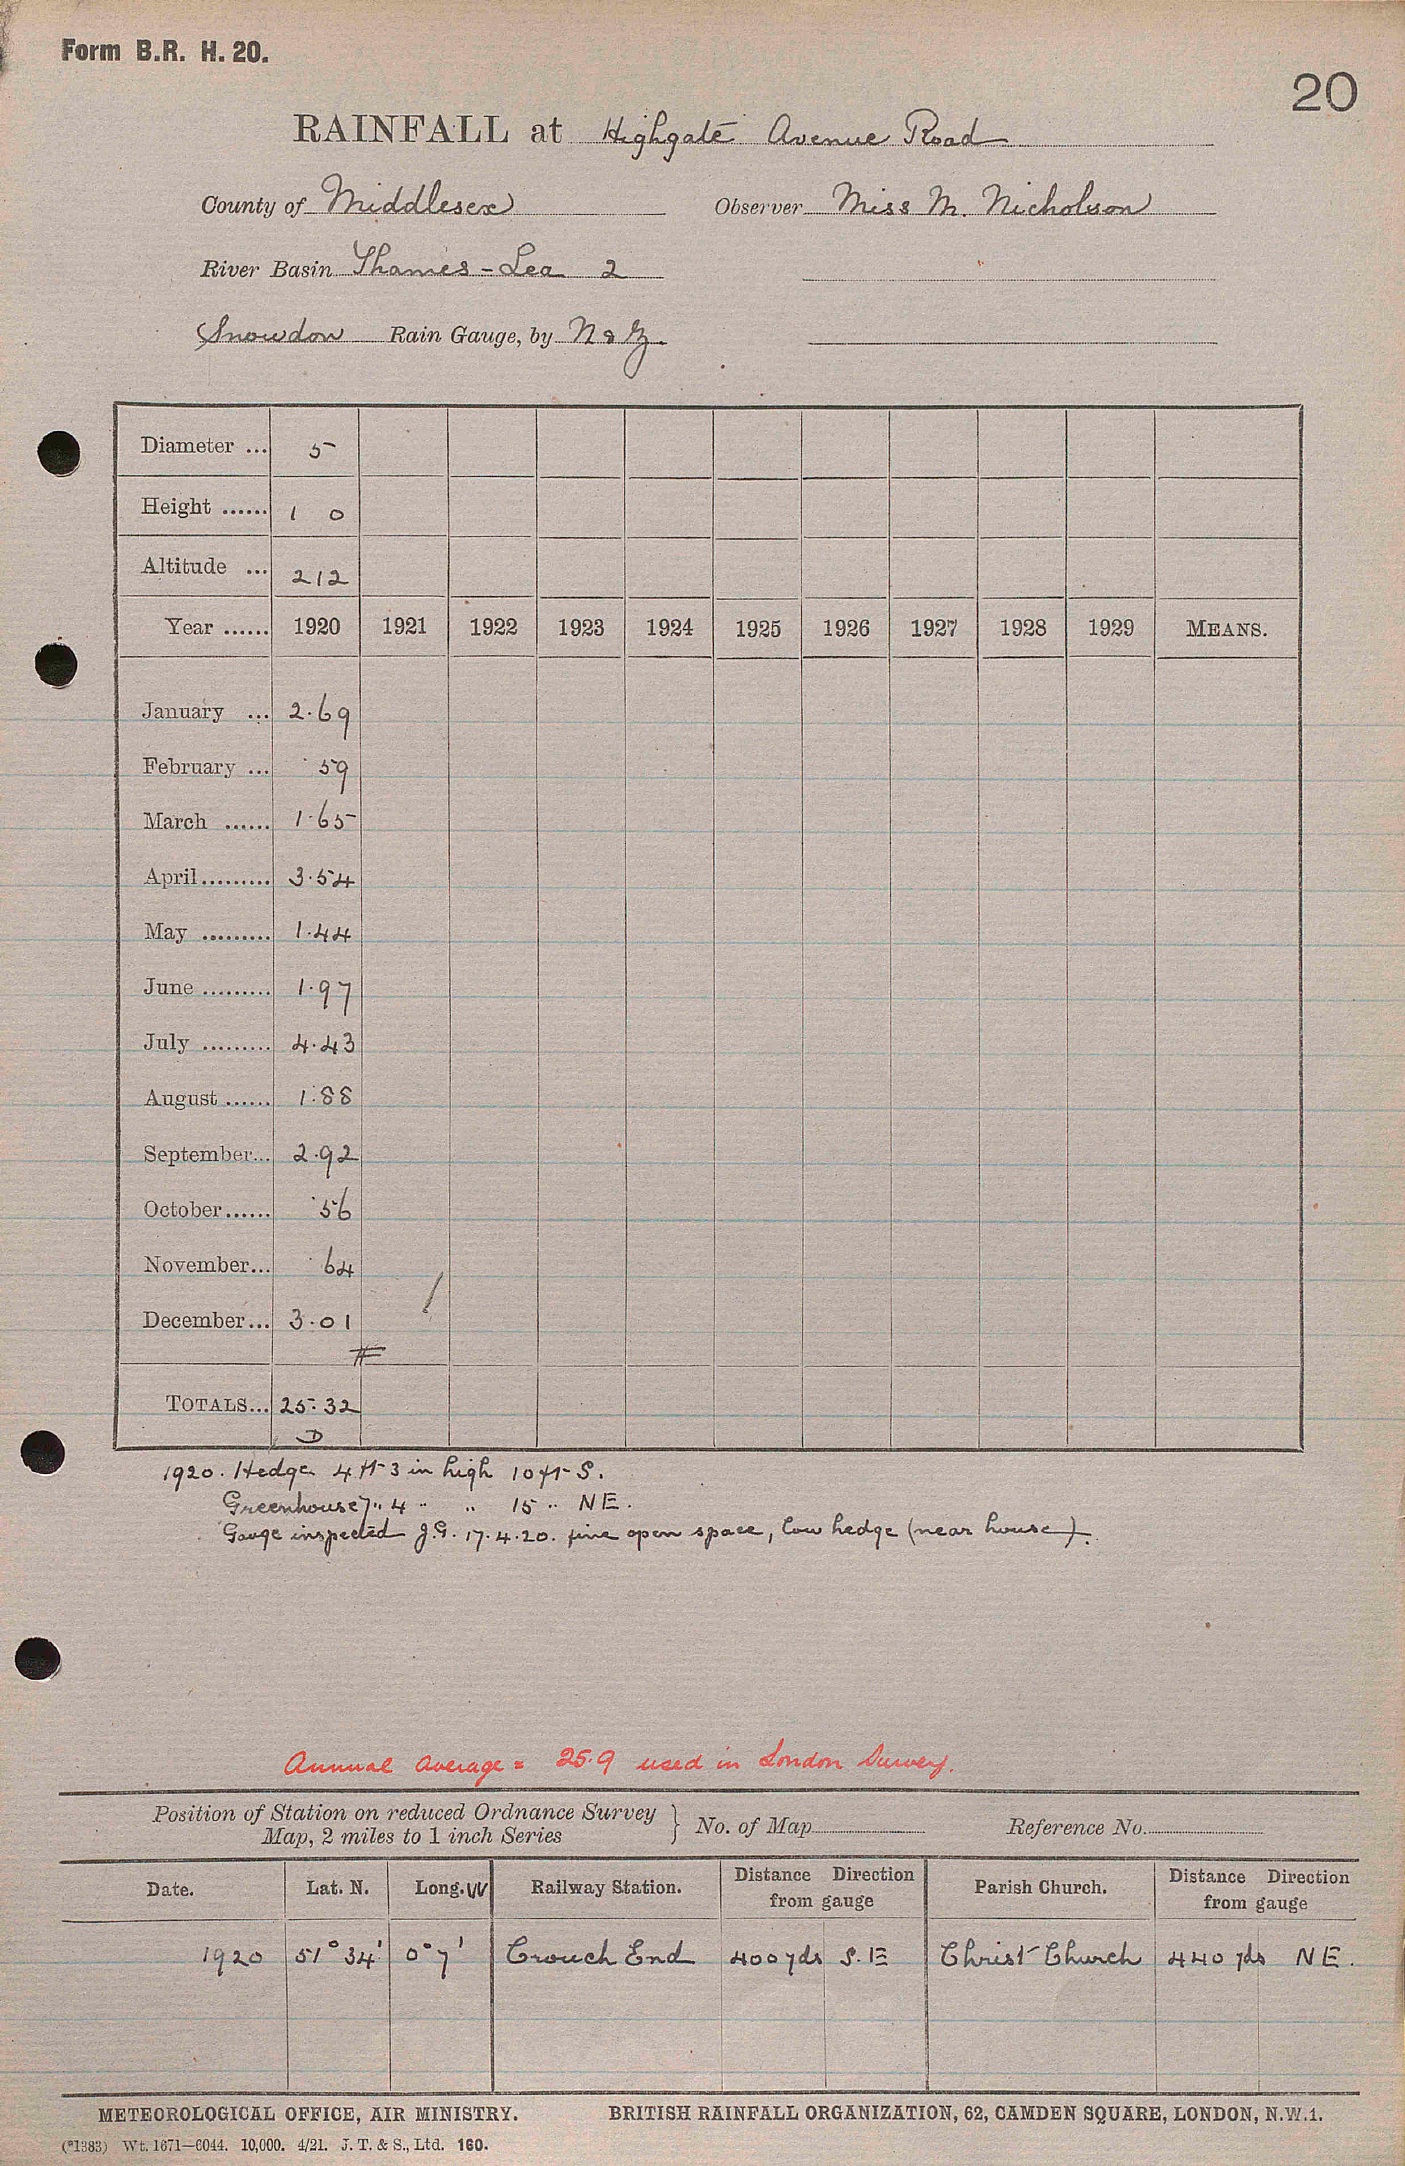 Form B.R. H. 20.
20
RAINFALL at Highgate Avenue Road
County of Middlesex Observer Miss M. Nicholson
River Basin Thames - Lea 2
Snowdon Rain Gauge, by N & Z.
Diameter ... 5
Height ...... 1 0
Altitude ... 212
Year ...... 1920 1921 1922 1923 1924 1925 1926 1927 1928 1929 MEANS.
January ... 2.69
February ... .59
March ...... 1.65
April ......... 3.54
May ......... 1.44
June ......... 1.97
July ......... 4.43
August ...... 1.88
September... 2.92
October ...... .56
November... .64
December... 3.01
TOTALS... 25.32
D
1920. Hedge 4 ft 3 in high 10 ft S.
Greenhouse 7 " 4 " " 15 " NE.
Gauge inspected J.G. 17.4.20. fine open space, low hedge (near house).
Annual average = 25.9 used in London Survey.
Position of Station on reduced Ordnance Survey Map, 2 miles to 1 inch Series } No. of Map Reference No.
Date. Lat. N. Long. W Railway Station. Distance Direction from gauge Parish Church. Distance Direction from gauge
1920 51° 34' 0° 7' Crouch End 400 yds S.E Christ Church 440 yds NE.
METEOROLOGICAL OFFICE, AIR MINISTRY. BRITISH RAINFALL ORGANIZATION, 62, CAMDEN SQUARE, LONDON, N.W.1.
(*1383) Wt. 1671—6044. 10,000. 4/21. J. T. & S., Ltd. 160.